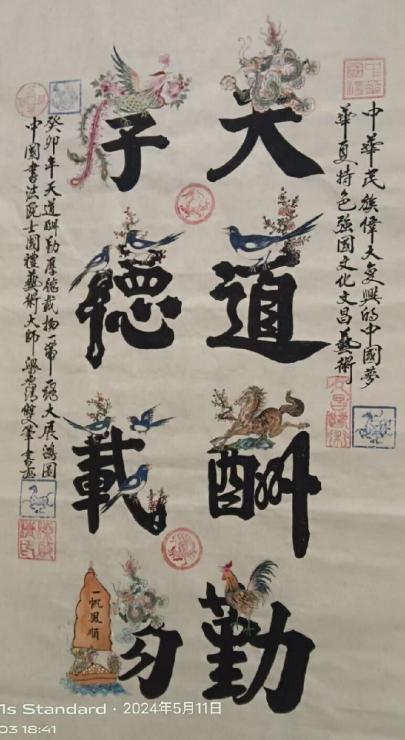 中華民族偉大复興的中國夢
華夏特色強國文化文昌藝術
天道酬勤
厚德載物
一帆風順
癸卯年天道酬勤厚德載物大展鴻圖
中国書法院士国禮藝術大師
1s Standard · 2024年5月11日
03 18:41